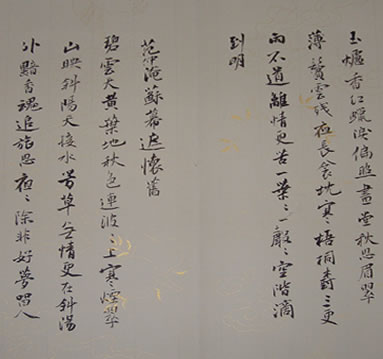 玉爐香紅蠟淚偏照畫堂秋思眉翠
薄鬢雲殘夜長衾枕寒梧桐樹三更
雨不道離情更苦一葉〻一聲〻空階滴
到明
范仲淹蘇幕遮懷舊
碧雲天黃葉地秋色連波〻上寒煙翠
山映斜陽天接水芳草無情更在斜陽
外黯香魂追旅思夜〻除非好夢留人